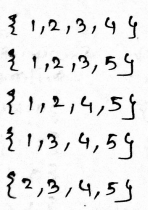 { 1,2,3,4 }
{ 1,2,3,5}
{ 1,2,4,5}
{ 1,3,4,5}
{2,3,4,5}